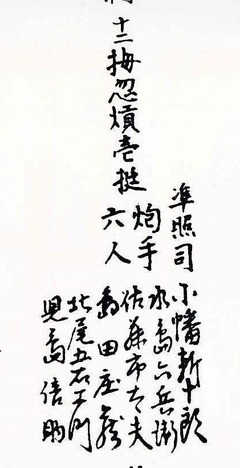 十二拇忽熕壱挺
準照司
炮手
六人
小幡新十郎
水島六兵衛
佐藤市太夫
島田庄蔵
北尾五右エ門
児島 助